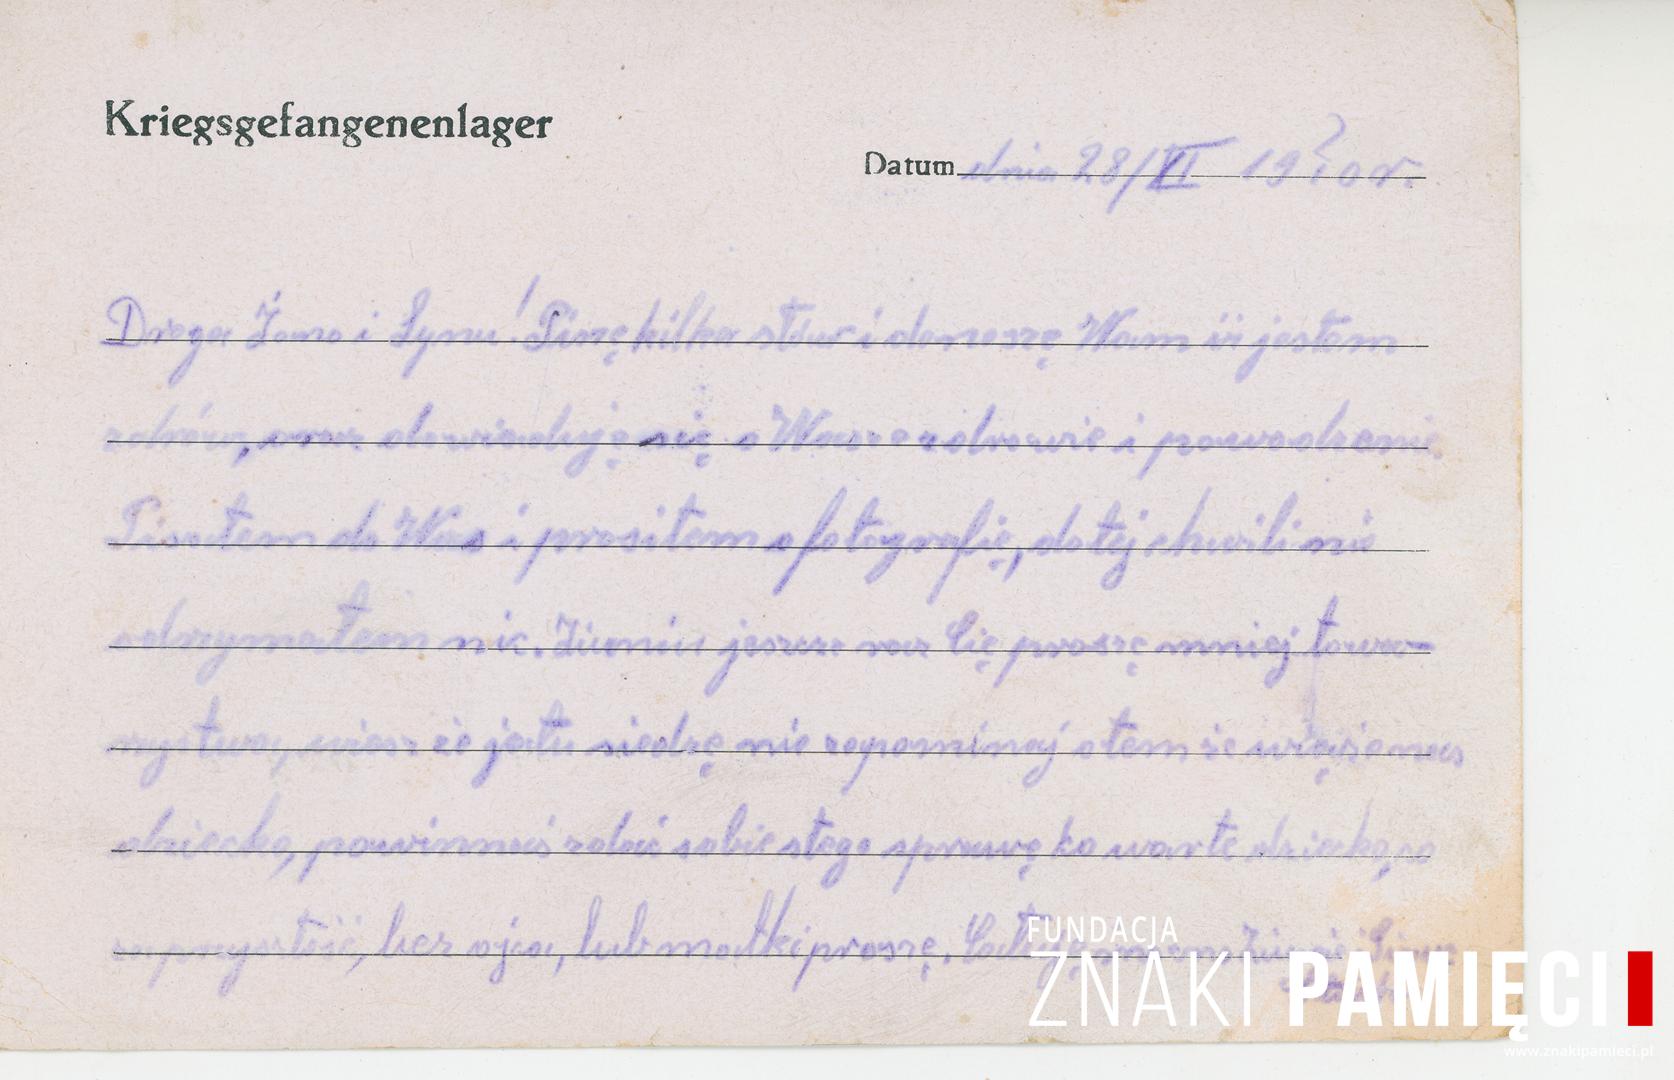 Kriegsgefangenenlager
Datum dnia 28/VII 1940 r.
Droga Żono i Synu! Piszę kilka słów i donoszę Wam iż jestem
zdrów, oraz dowiaduję się o Wasze zdrowie i powodzenie.
Pisałem do Was i prosiłem o fotografię, do tej chwili nie
odrzymałem nic. jeszcze raz Cię proszę mniej towa-
rzystwa, wiesz że ja tu siedzę nie zapominaj o tem że
dziecko, powinnaś zdać sobie s tego sprawę ko warte dziecko, co
za przyszłość, bez ojca, lub matki proszę.
FUNDACJA
ZNAKI PAMIĘCI
www.znakipamieci.pl